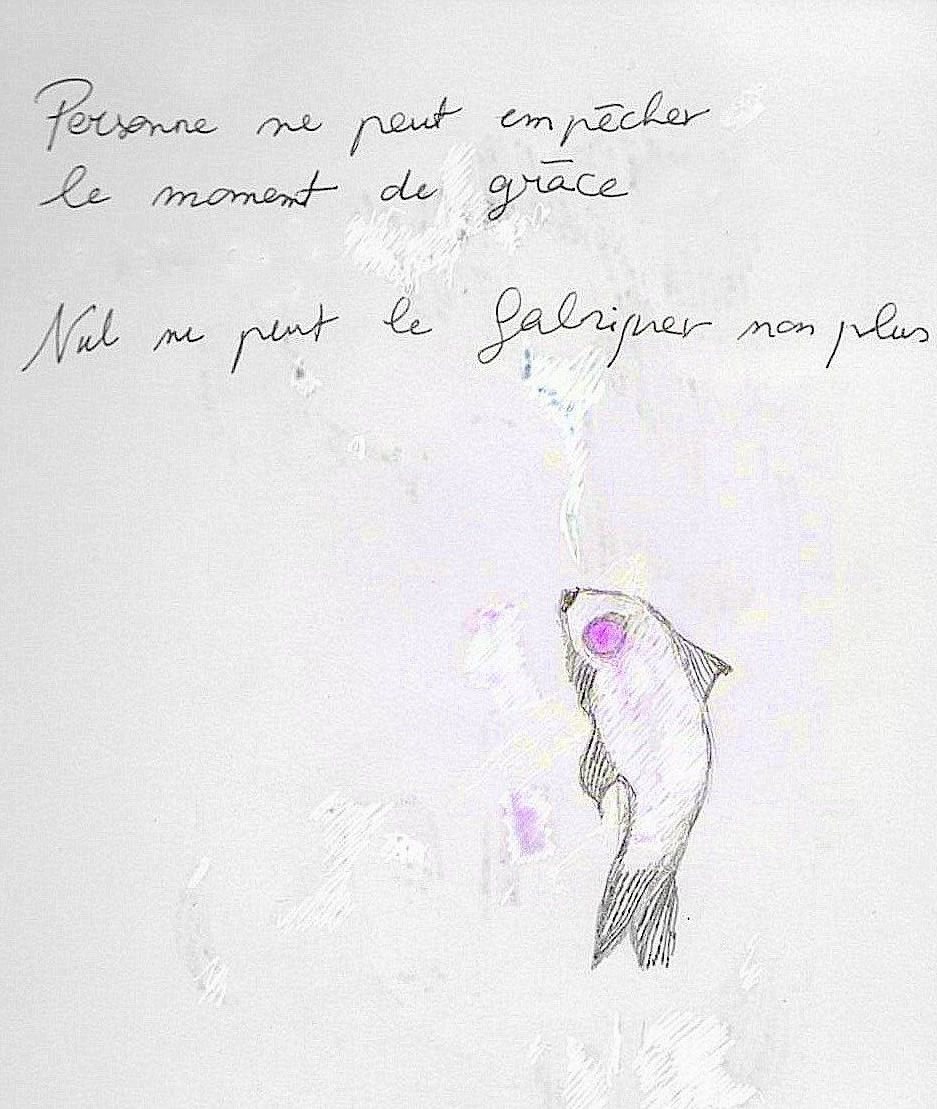 Personne ne peut empêcher
le moment de grâce
Nul ne peut le fabriquer non plus